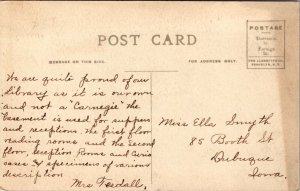 POST CARD
MESSAGE ON THIS SIDE.
FOR ADDRESS ONLY.
POSTAGE
Domestic 1c
Foreign 2c
We are quite proud of our
library as it is our own
and not a "Carnegie" the
basement is used for suppers
and receptions. the first floor
reading rooms and the second
floor, reception Rooms and Curio
cases & specimens of various
description
Mrs
Miss Ella Smyth
85 Booth St
Dubuque
Iowa.